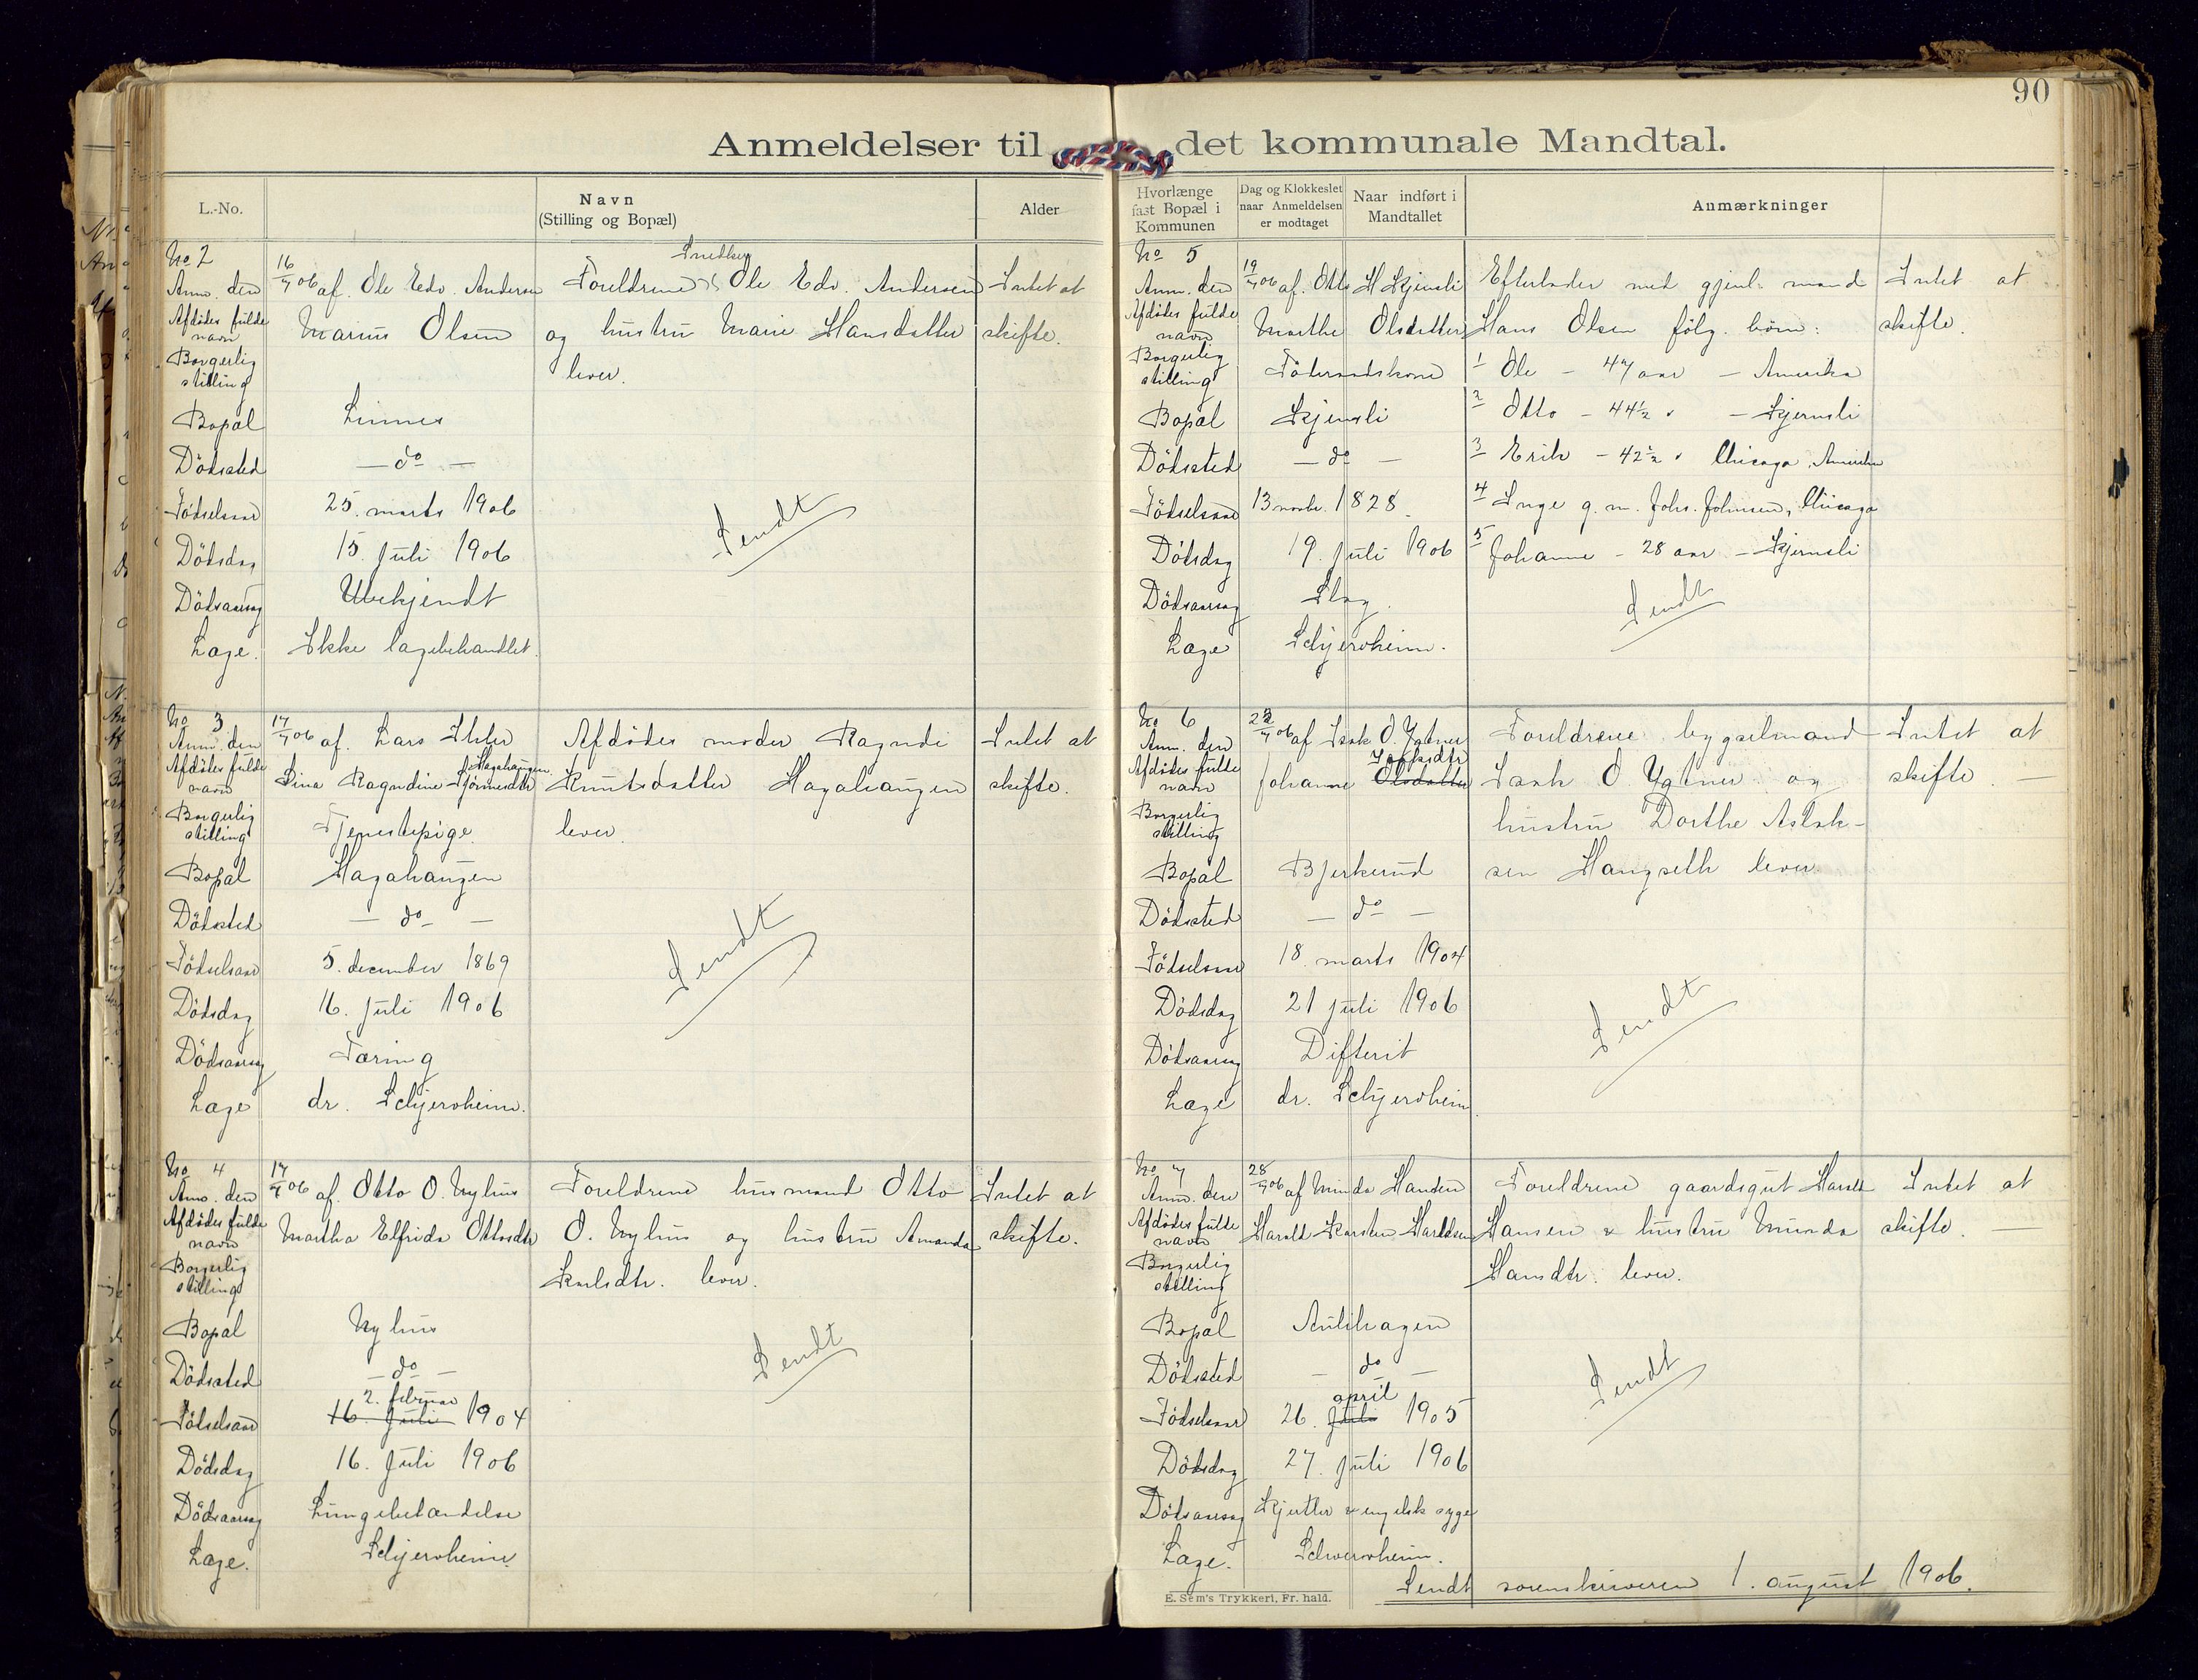 90
Anmeldelser til det kommunale Mandtal.
L.-No.
Navn
(Stilling og Bopæl)
Alder
No 2
Anm. den 16/7 06 af. Ole Edv. Andersen
Afdødes fulde navn Marius Olsen
Borgerlig stilling
Bopæl Linnes
Dødssted — do —
Fødselsaar 25. marts 1906
Dødsdag 15. juli 1906
Dødsaarsag Ubekjendt
Læge. Ikke lægebehandlet.
Forældrene Ole Edv. Andersen
og hustru Marie Hansdatter
lever.
Intet at
skifte.
Sendt
No 3
Anm. den 17/7 06 af. Lars Ihler
Hagahaugen
Afdødes fulde navn Sina Ragndine Hjørmesdtr
Borgerlig stilling Tjenestepige
Bopæl Hagahaugen
Dødssted — do —
Fødselsaar 5. december 1869
Dødsdag 16. juli 1906
Dødsaarsag Tæring
Læge dr. Schjeroheim.
Afdødes moder Ragndi
Knutsdatter Hagahaugen
lever.
Intet at
skifte.
Sendt
No 4
Anm. den 17/7 06 af. Otto O. Nyhus
Afdødes fulde navn Martha Elfrida Ottosdtr
Borgerlig stilling
Bopæl Nyhus
Dødssted — do —
2. februar
Fødselsaar 16. juli 1904
Dødsdag 16. juli 1906
Dødsaarsag Lungebetændelse
Læge. Schjeroheim.
Forældrene husmand Otto
O. Nyhus og hustru Amanda
Karlsdtr. lever.
Intet at
skifte.
Sendt
Hvorlænge
fast Bopæl i
Kommunen
Dag og Klokkeslet
naar Anmeldelsen
er modtaget
Naar indført i
Mandtallet
Anmærkninger
No 5
Anm. den 19/7 06 af. Otto H Kjernsli
Afdødes fulde navn Marthe Olsdatter
Borgerlig stilling Føderaadskone
Bopæl Kjernsli
Dødssted — do —
Fødselsaar 13 novbr. 1828.
Dødsdag 19. juli 1906
Dødsaarsag Slag.
Læge Schjeroheim.
Efterlader med gjenl. mand
Hans Olsen følg. børn:
1 Ole — 47 aar — Amerika
2 Otto — 44½ " — Kjernsli
3 Erik — 42½ " Chicago, Amerika
4 Inge g. m. Johs. Johnsen, Chicago
5 Johanne — 28 aar — Kjernsli
Intet at
skifte.
Sendt
No 6
Anm. den 22/7 06 af Isak O. Ygtner
Isaksdtr
Afdødes fulde navn Johanne Olsdatter
Borgerlig stilling
Bopæl Bjerkerud
Dødssted — do —
Fødselsaar 18. marts 1904
Dødsdag 21 juli 1906
Dødsaarsag Difterit
Læge dr. Schjeroheim.
Forældrene bygselmand
Isak O. Ygtner og
hustru Dorthe Aslak-
sen Haugseth lever.
Intet at
skifte. —
Sendt
No 7
Anm. den 28/7 06 af Minda Hansen
Afdødes fulde navn Harald Karsten Haraldsen
Borgerlig stilling
Bopæl Aulihagen
Dødssted — do —
april
Fødselsaar 26. juli 1905
Dødsdag 27. juli 1906
Dødsaarsag Kjertler & engelsk syge
Læge. Schjeroheim.
Forældrene gaardsgut Harald
Hansen & hustru Minda
Hansdtr. lever.
Intet at
skifte. —
Sendt
Sendt sorenskriveren 1. august 1906.
E. Sem's Trykkeri, Fr. hald.